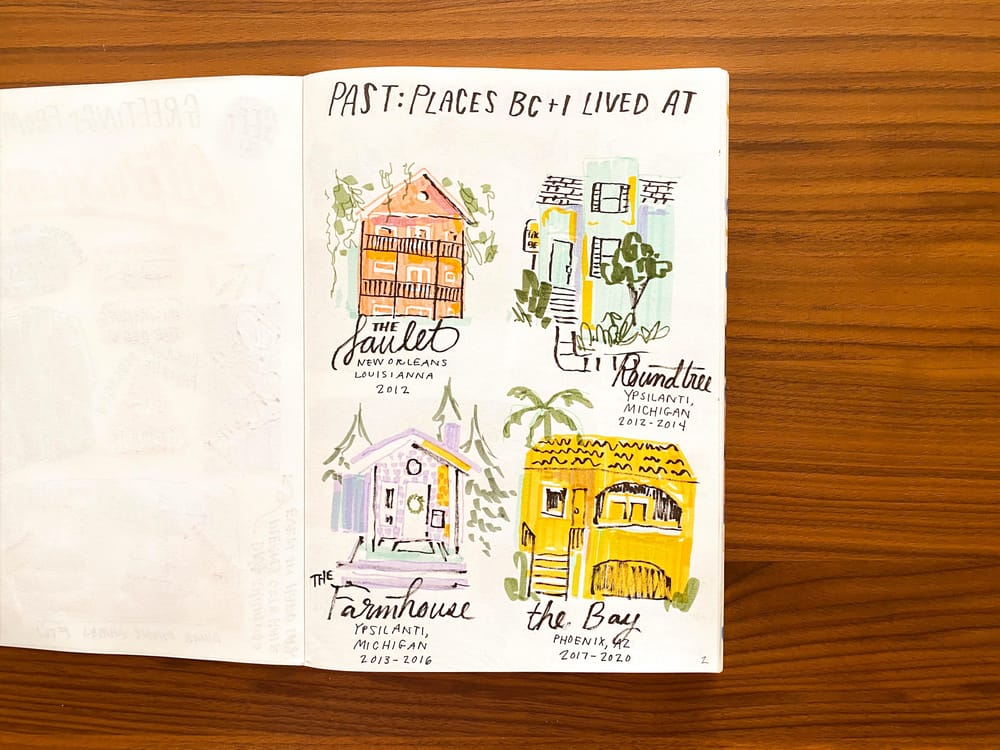 PAST: PLACES BC+I LIVED AT
THE
Saulet
NEW ORLEANS
LOUISIANNA
2012
Roundtree
YPSILANTI,
MICHIGAN
2012-2014
THE
Farmhouse
YPSILANTI,
MICHIGAN
2013-2016
the Bay
PHOENIX, AZ
2017-2020
2
GREETINGS FROM